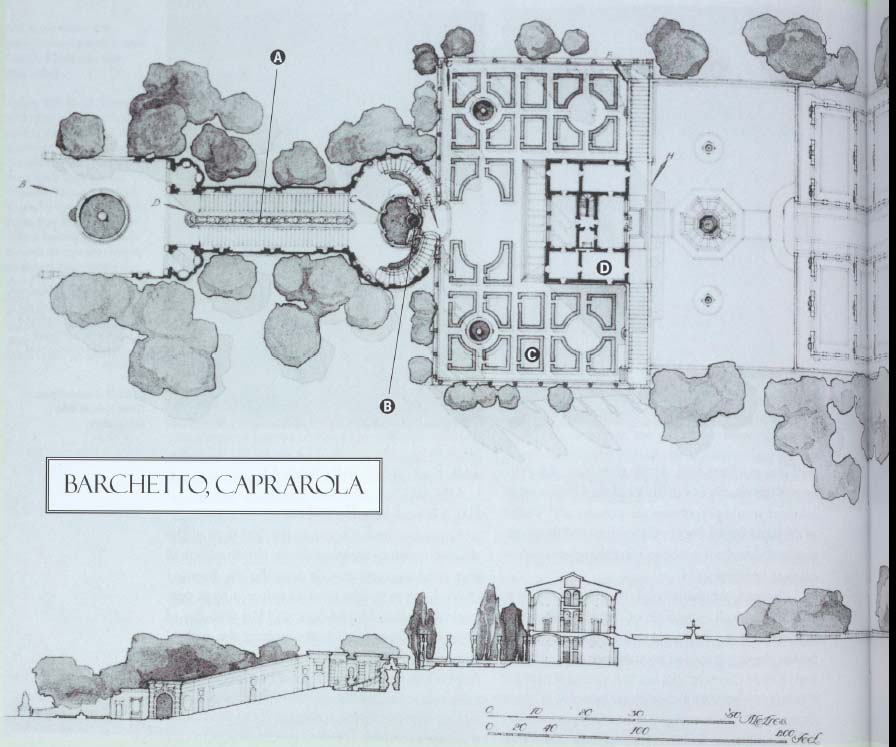 A
E
B
D
C
H
D
C
B
BARCHETTO, CAPRAROLA
0 10 20 30 50 Metres
0 20 40 100 200 Feet